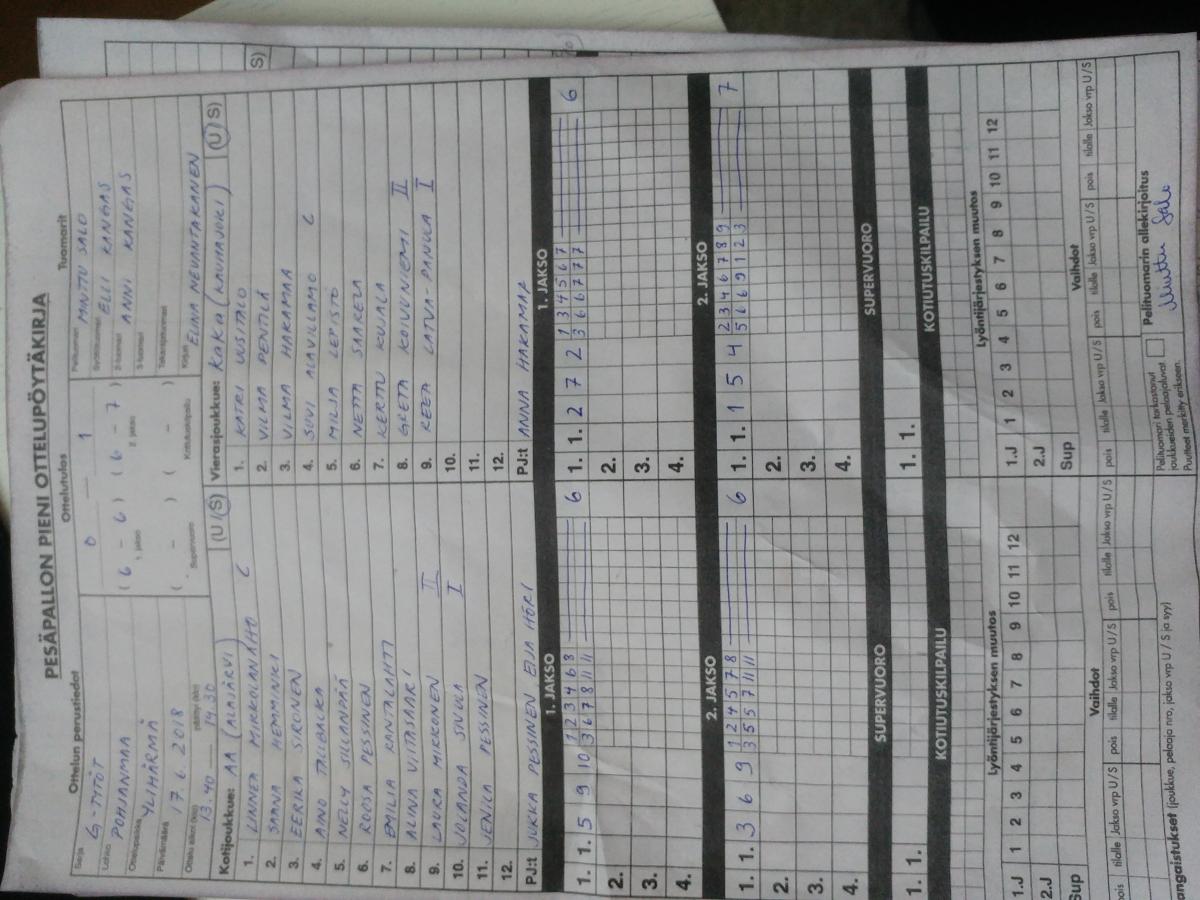 PESÄPALLON PIENI OTTELUPÖYTÄKIRJA
Ottelun perustiedot
Sarja G-TYTÖT
Lohko POHJANMAA
Ottelupaikka YLIHÄRMÄ
Päivämäärä 17.6.2018
Ottelu alkoi (klo) 13.40 — päättyi (klo) 14.30
Ottelutulos
0 — 1
( 6 - 6 ) ( 6 - 7 )
1. jakso 2. jakso
( - ) ( - )
Supervuoro Kotiutuskilpailu
Tuomarit
Pelituomari MINTTU SALO
Syöttötuomari ELLI KANGAS
2-tuomari ANNI KANGAS
3-tuomari
Takarajatuomari
Kirjuri ELINA NEVANTAKANEN
Kotijoukkue: AA (ALAJÄRVI) (U/S)
1. LINNEA MIKKOLANAHO C
2. SAANA HEMMINKI
3. EERIKA SIRONEN
4. AINO TALLBACKA
5. NELLY SILLANPÄÄ
6. ROOSA PESSINEN
7. EMILIA RANTALAHTI
8. ALINA VIITASAARI
9. LAURA MIKKONEN II
10. JOLANDA SIVULA I
11. JENICA PESSINEN
12.
PJ:t JUKKA PESSINEN EIJA HÖRI
Vierasjoukkue: KaKa (KAUHAJOKI) (U/S)
1. KATRI UUSITALO
2. VILMA PENTILÄ
3. VILMA HAKAMAA
4. SUVI ALAVILLAMO C
5. MILJA LEPISTÖ
6. NETTA SAARELA
7. KERTTU KUJALA
8. GRETA KOIVUNIEMI II
9. REEA LATVA-PANULA I
10.
11.
12.
PJ:t ANNA HAKAMAA
1. JAKSO
1. 1. 5 9 10 1 2 3 4 6 8 6
3 6 7 8 11 11
2.
3.
4.
1. JAKSO
1. 1. 2 7 2 1 3 4 5 6 7 6
3 6 6 7 7 7
2.
3.
4.
2. JAKSO
1. 1. 3 6 9 1 2 4 5 7 8 6
3 5 5 7 11 11
2.
3.
4.
2. JAKSO
1. 1. 1 5 4 2 3 4 6 7 8 9 7
5 6 6 9 1 2 3
2.
3.
4.
SUPERVUORO
1. 1.
SUPERVUORO
1. 1.
KOTIUTUSKILPAILU
KOTIUTUSKILPAILU
Lyöntijärjestyksen muutos
1.J 1 2 3 4 5 6 7 8 9 10 11 12
2.J
Sup
Lyöntijärjestyksen muutos
1.J 1 2 3 4 5 6 7 8 9 10 11 12
2.J
Sup
Vaihdot
pois tilalle Jakso vrp U/S pois tilalle Jakso vrp U/S pois tilalle Jakso vrp U/S
Vaihdot
pois tilalle Jakso vrp U/S pois tilalle Jakso vrp U/S pois tilalle Jakso vrp U/S
angaistukset (joukkue, pelaaja nro, jakso vrp U / S ja syy)
Pelituomari tarkastanut
joukkueiden pelaajaluvat.
Puutteet merkitty erikseen.
Pelituomarin allekirjoitus
Minttu Salo